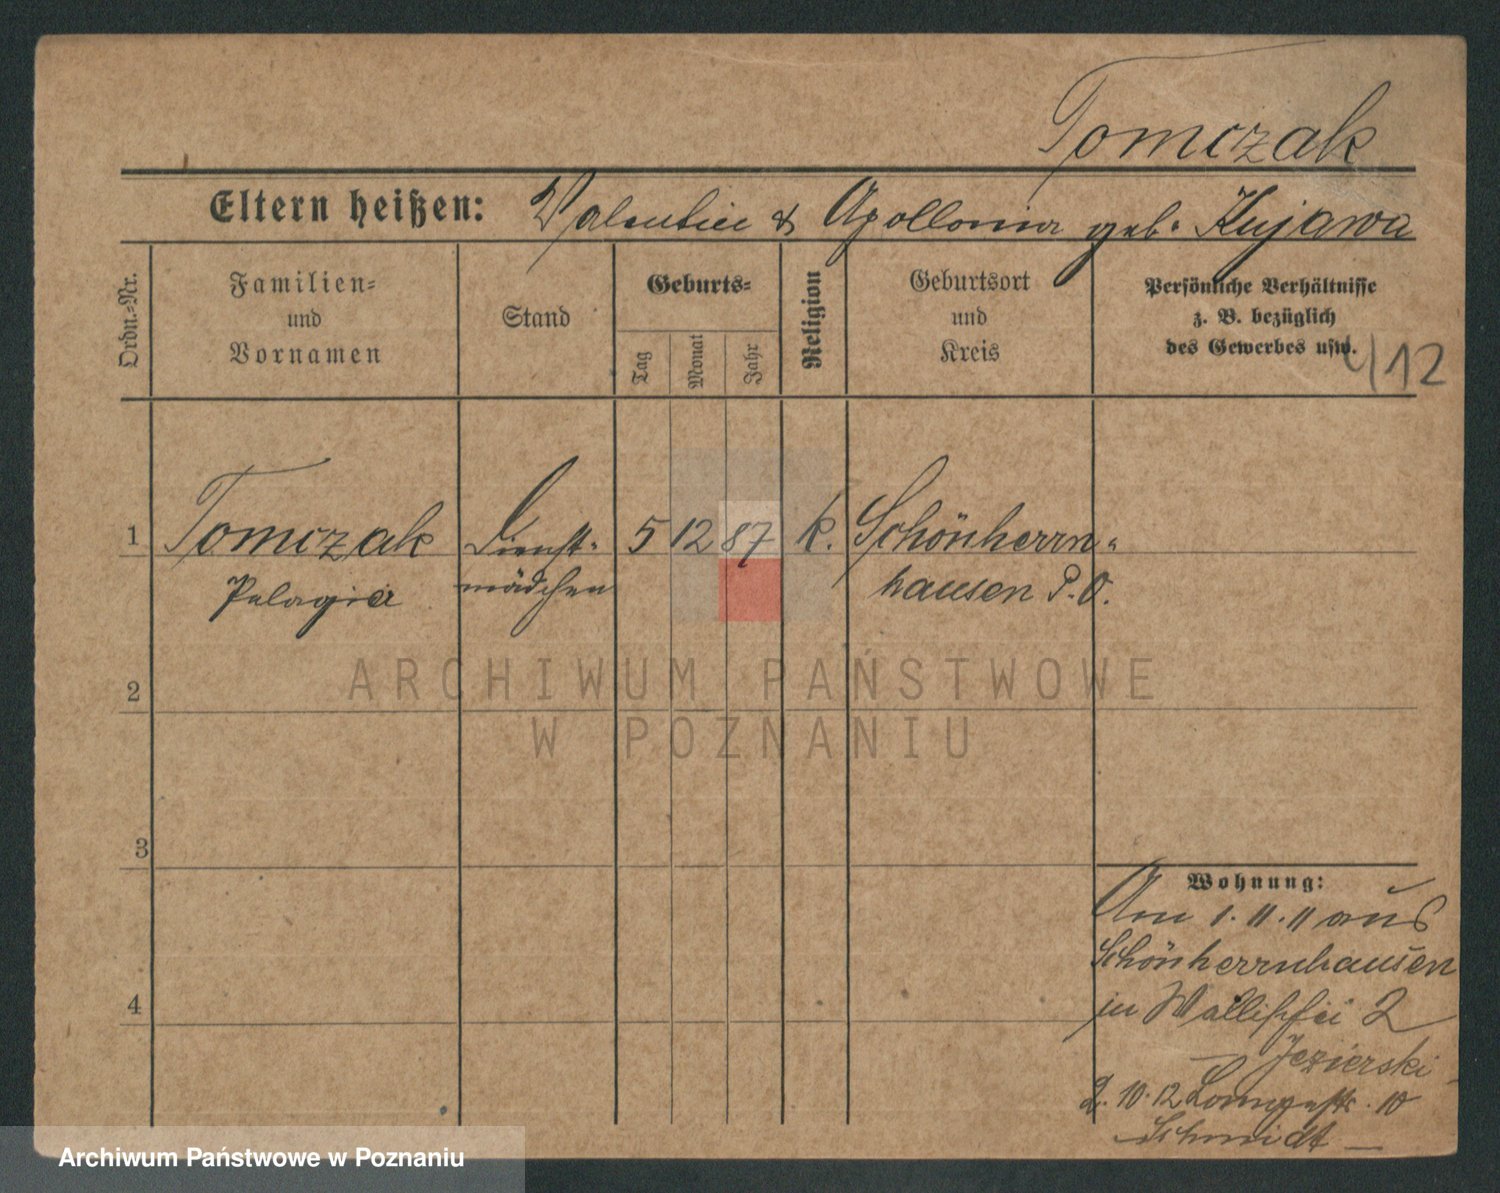 Tomczak
Eltern heißen: Valentin & Apollonia geb. Kujawa
Ordn.-Nr.
Familien-
und
Vornamen
Stand
Geburts-
Tag
Monat
Jahr
Religion
Geburtsort
und
Kreis
Persönliche Verhältnisse
z. B. bezüglich
des Gewerbes usw.
4/12
1 Tomczak Dienst- 5 12 87 k. Schönherrn-
Pelagia mädchen hausen P.O.
2
ARCHIWUM PAŃSTWOWE
W POZNANIU
3
Wohnung:
Am 1.11.11 aus
Schönherrnhausen
in Wallischei 2
Jezierski
2.10.12 Langestr. 10
Schmidt
4
Archiwum Państwowe w Poznaniu